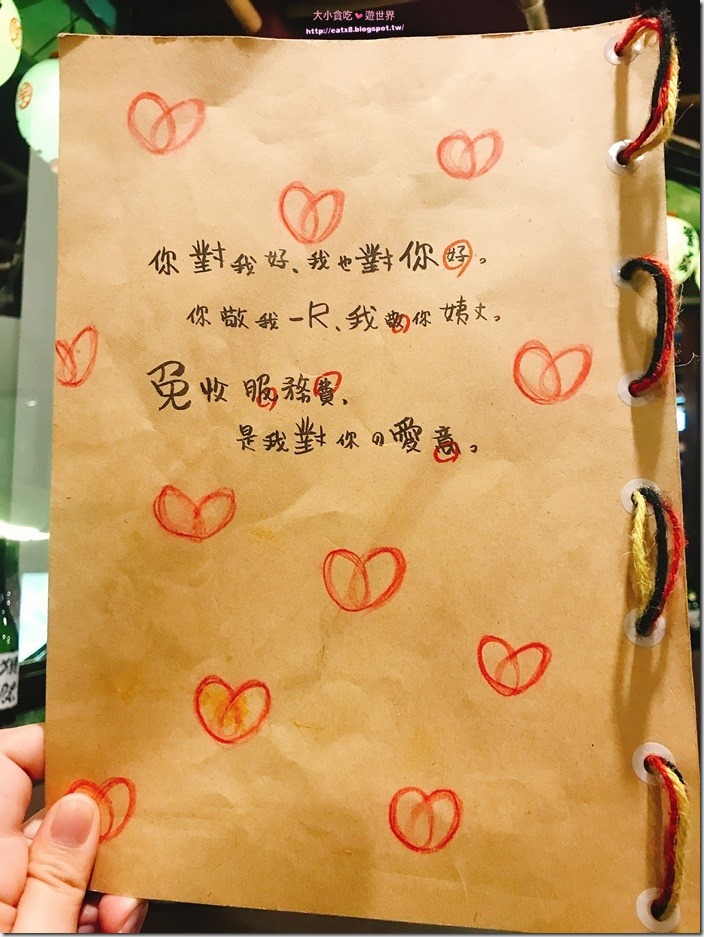 大小貪吃❤遊世界
http://eatx8.blogspot.tw/
你對我好、我也對你好。
你敬我一尺、我敬你姨丈。
免收服務費、
是我對你の愛意。